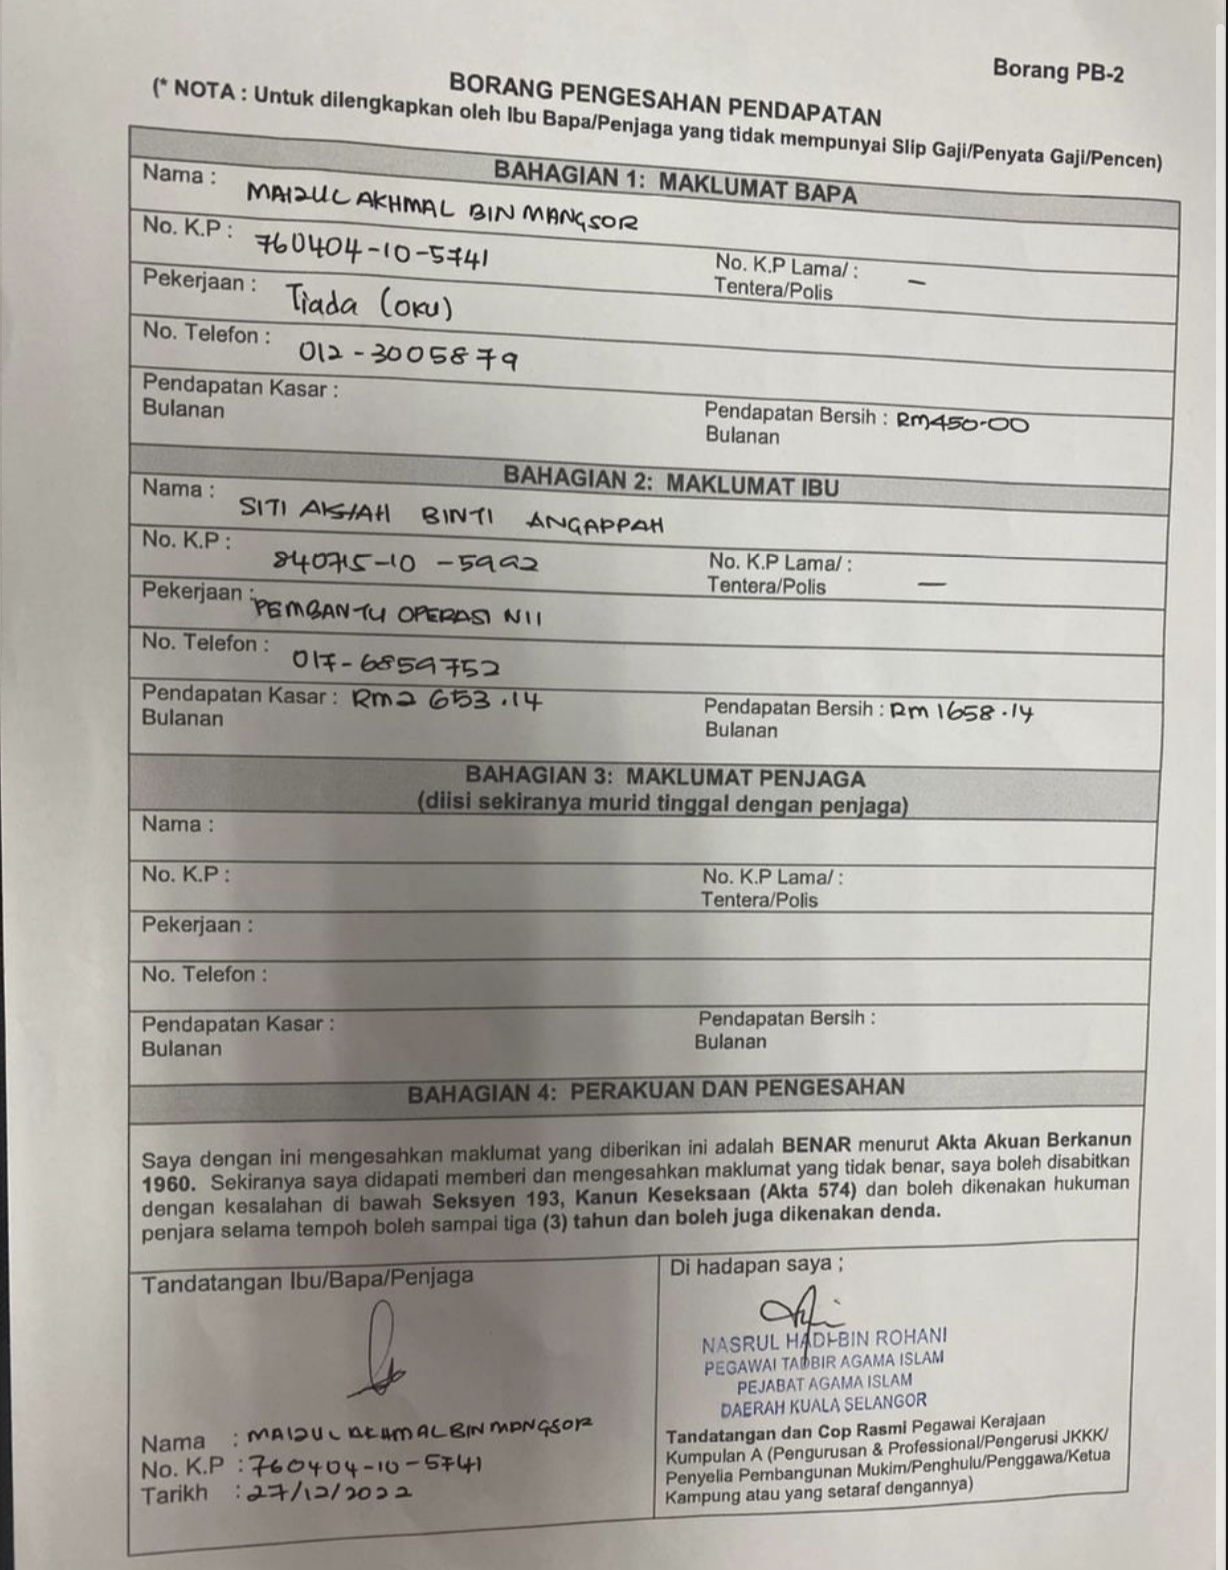 Borang PB-2
BORANG PENGESAHAN PENDAPATAN
(* NOTA : Untuk dilengkapkan oleh Ibu Bapa/Penjaga yang tidak mempunyai Slip Gaji/Penyata Gaji/Pencen)
BAHAGIAN 1: MAKLUMAT BAPA
Nama : MAIZUL AKHMAL BIN MANGSOR
No. K.P : 760404-10-5741
No. K.P Lama/ : –
Tentera/Polis
Pekerjaan : Tiada (OKU)
No. Telefon : 012-3005879
Pendapatan Kasar :
Bulanan
Pendapatan Bersih : RM450-00
Bulanan
BAHAGIAN 2: MAKLUMAT IBU
Nama : SITI AISHAH BINTI ANGAPPAH
No. K.P : 840715-10-5992
No. K.P Lama/ : –
Tentera/Polis
Pekerjaan : PEMBANTU OPERASI N11
No. Telefon : 017-6859752
Pendapatan Kasar : Rm2 653.14
Bulanan
Pendapatan Bersih : Rm 1658.14
Bulanan
BAHAGIAN 3: MAKLUMAT PENJAGA
(diisi sekiranya murid tinggal dengan penjaga)
Nama :
No. K.P :
No. K.P Lama/ :
Tentera/Polis
Pekerjaan :
No. Telefon :
Pendapatan Kasar :
Bulanan
Pendapatan Bersih :
Bulanan
BAHAGIAN 4: PERAKUAN DAN PENGESAHAN
Saya dengan ini mengesahkan maklumat yang diberikan ini adalah BENAR menurut Akta Akuan Berkanun
1960. Sekiranya saya didapati memberi dan mengesahkan maklumat yang tidak benar, saya boleh disabitkan
dengan kesalahan di bawah Seksyen 193, Kanun Keseksaan (Akta 574) dan boleh dikenakan hukuman
penjara selama tempoh boleh sampai tiga (3) tahun dan boleh juga dikenakan denda.
Tandatangan Ibu/Bapa/Penjaga
Nama : MAIZUL AKHMAL BIN MANGSOR
No. K.P : 760404-10-5741
Tarikh : 27/12/2022
Di hadapan saya ;
NASRUL HADI BIN ROHANI
PEGAWAI TADBIR AGAMA ISLAM
PEJABAT AGAMA ISLAM
DAERAH KUALA SELANGOR
Tandatangan dan Cop Rasmi Pegawai Kerajaan
Kumpulan A (Pengurusan & Professional/Pengerusi JKKK/
Penyelia Pembangunan Mukim/Penghulu/Penggawa/Ketua
Kampung atau yang setaraf dengannya)